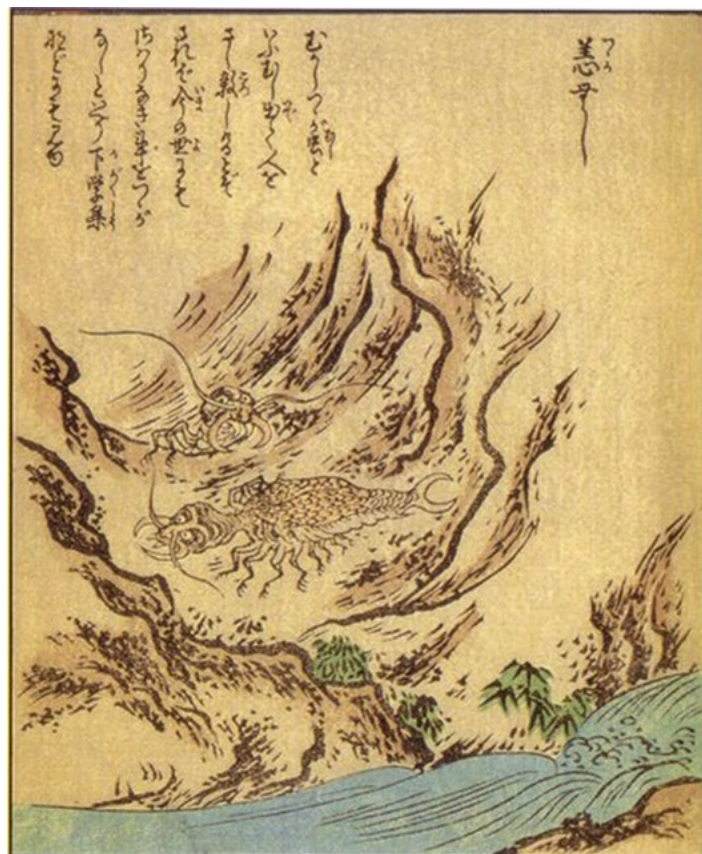 恙むし
むかしつゝが虫と
いふむし出て人を
さし殺しけるとぞ
されば今の世にも
さはりなき事をつゝが
なしといへり下学集
などにも見ゆ